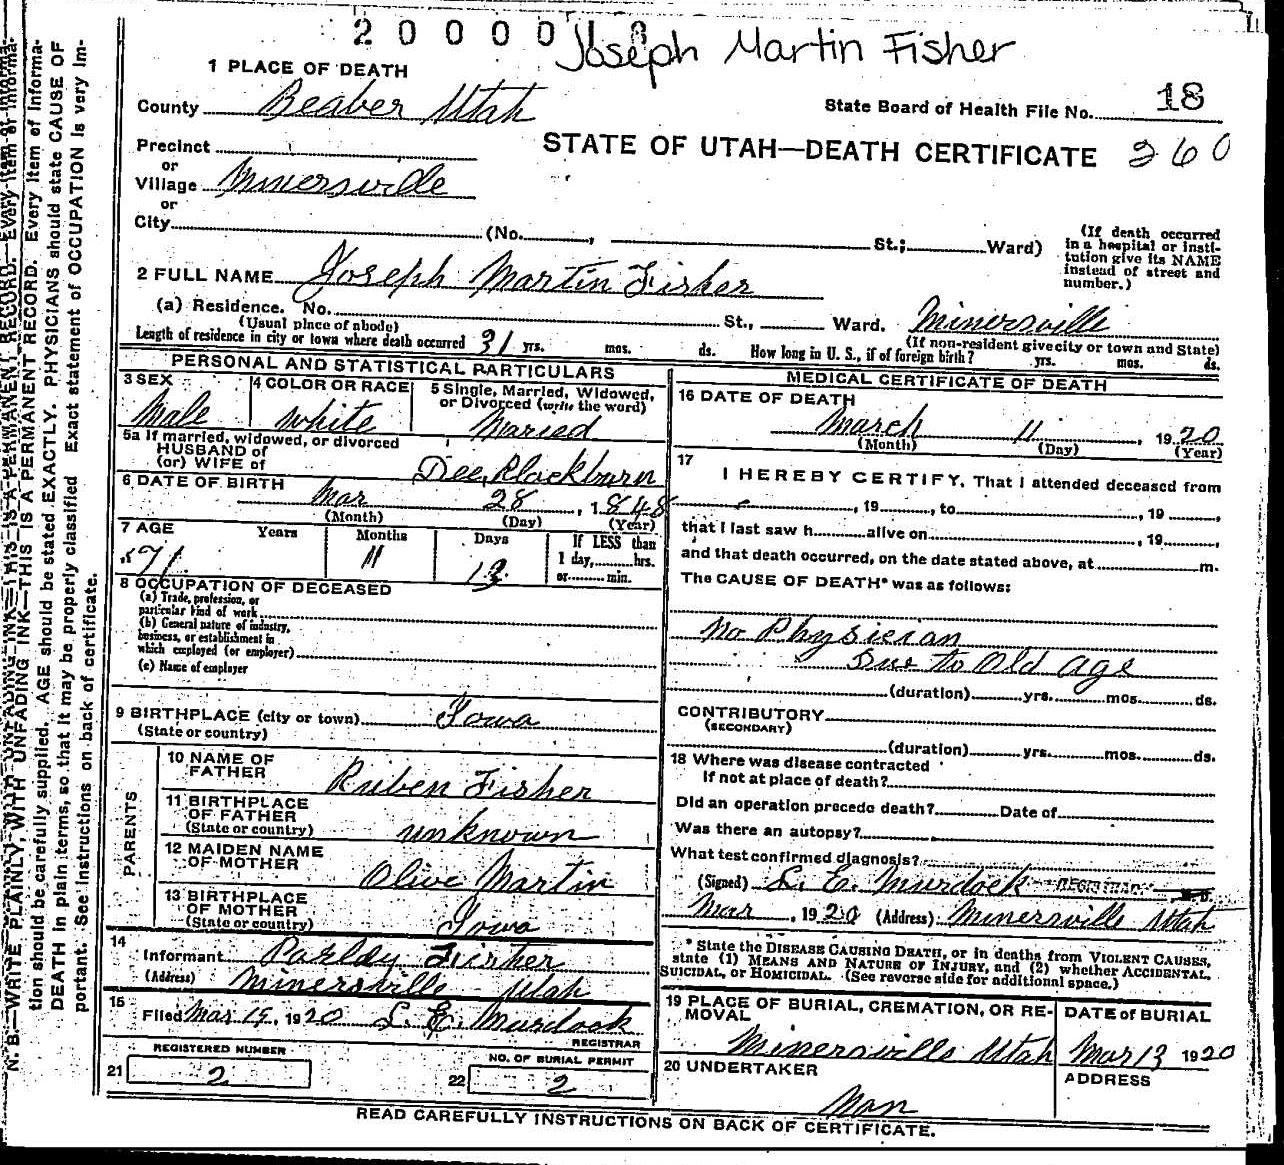 2 0 0 0 0 1 8
Joseph Martin Fisher
1 PLACE OF DEATH
County Beaber Utah
State Board of Health File No. 18
STATE OF UTAH—DEATH CERTIFICATE 260
Precinct
or
Village Minersville
or
City (No. , St.; Ward)
(If death occurred
in a hospital or insti-
tution give its NAME
instead of street and
number.)
2 FULL NAME Joseph Martin Fisher
(a) Residence. No. St., Ward. Minersville
(Usual place of abode) (If non-resident give city or town and State)
Length of residence in city or town where death occurred 31 yrs. mos. ds. How long in U. S., if of foreign birth? yrs. mos. ds.
PERSONAL AND STATISTICAL PARTICULARS
3 SEX
Male
4 COLOR OR RACE
White
5 Single, Married, Widowed,
or Divorced (write the word)
Maried
5a If married, widowed, or divorced
HUSBAND of
(or) WIFE of Dee Blackburn
6 DATE OF BIRTH
Mar 28 , 1848
(Month) (Day) (Year)
7 AGE Years Months Days If LESS than
71 11 13 1 day, hrs.
or min.
8 OCCUPATION OF DECEASED
(a) Trade, profession, or
particular kind of work
(b) General nature of industry,
business, or establishment in
which employed (or employer)
(c) Name of employer
9 BIRTHPLACE (city or town) Iowa
(State or country)
PARENTS
10 NAME OF
FATHER Ruben Fisher
11 BIRTHPLACE
OF FATHER
(State or country) unknown
12 MAIDEN NAME
OF MOTHER Olive Martin
13 BIRTHPLACE
OF MOTHER
(State or country) Iowa
14
Informant Parldy Fisher
(Address) Minersville Utah
15
Filed Mar 15, 1920 L. E. Murdock
REGISTRAR
REGISTERED NUMBER
21 2
NO. OF BURIAL PERMIT
22 2
MEDICAL CERTIFICATE OF DEATH
16 DATE OF DEATH
March 11 , 1920
(Month) (Day) (Year)
17
I HEREBY CERTIFY, That I attended deceased from
, 19 , to , 19 ,
that I last saw h alive on , 19 ,
and that death occurred, on the date stated above, at m.
The CAUSE OF DEATH* was as follows:
No Physician
Due to Old age
(duration) yrs. mos. ds.
CONTRIBUTORY
(SECONDARY)
(duration) yrs. mos. ds.
18 Where was disease contracted
if not at place of death?
Did an operation precede death? Date of
Was there an autopsy?
What test confirmed diagnosis?
(Signed) L. E. Murdock REGISTRAR M. D.
Mar , 1920 (Address) Minersville Utah
* State the DISEASE CAUSING DEATH, or in deaths from VIOLENT CAUSES,
state (1) MEANS AND NATURE OF INJURY, and (2) whether ACCIDENTAL,
SUICIDAL, or HOMICIDAL. (See reverse side for additional space.)
19 PLACE OF BURIAL, CREMATION, OR RE-
MOVAL
Minersville Utah
DATE of BURIAL
Mar 13 1920
20 UNDERTAKER
Non
ADDRESS
READ CAREFULLY INSTRUCTIONS ON BACK OF CERTIFICATE.
N. B.—WRITE PLAINLY, WITH UNFADING INK—THIS IS A PERMANENT RECORD. Every item of informa-
tion should be carefully supplied. AGE should be stated EXACTLY. PHYSICIANS should state CAUSE OF
DEATH in plain terms, so that it may be properly classified Exact statement of OCCUPATION is very im-
portant. See instructions on back of certificate.